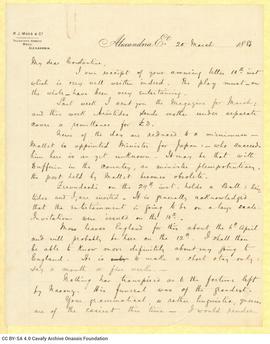 R. J. Moss & Co.
Alexandria.
Alexandria, Et. 20 March 188
My dear Constantine,
I am in receipt of your amusing letter 10th inst
which is very well written indeed. The play must — on
the whole — have been very entertaining.
Last week I send you the Magazine for March;
and this week Aristides sends under separate
cover a remittance for £3.
News of the day are reduced to a minimum —
Mallet is appointed Minister for Japan: — who succeeds
him here is as yet unknown. It may be that with
Dufferin in the country, as minister plenipotentiary,
the post held by Mallet becomes obsolete.
on the 24th inst. holds a Ball:
and I are invited. It is generally acknowledged
that the entertainment is going to be on a large scale.
Invitations were issued on the 14th.
Moss leaves England for this about the 6th April
and will probably be here on the 13th. I shall then
be able to know more definitely about my going to
England. He is to make a short stay only;
say a month or five weeks. —
Nothing has transpired as to the fortune left
by . His funeral was of the grandest.
Your grammatical, or rather linguistic, queries
are of the easiest this time — I would render
CC BY-SA 4.0 Cavafy Archive Onassis Foundation